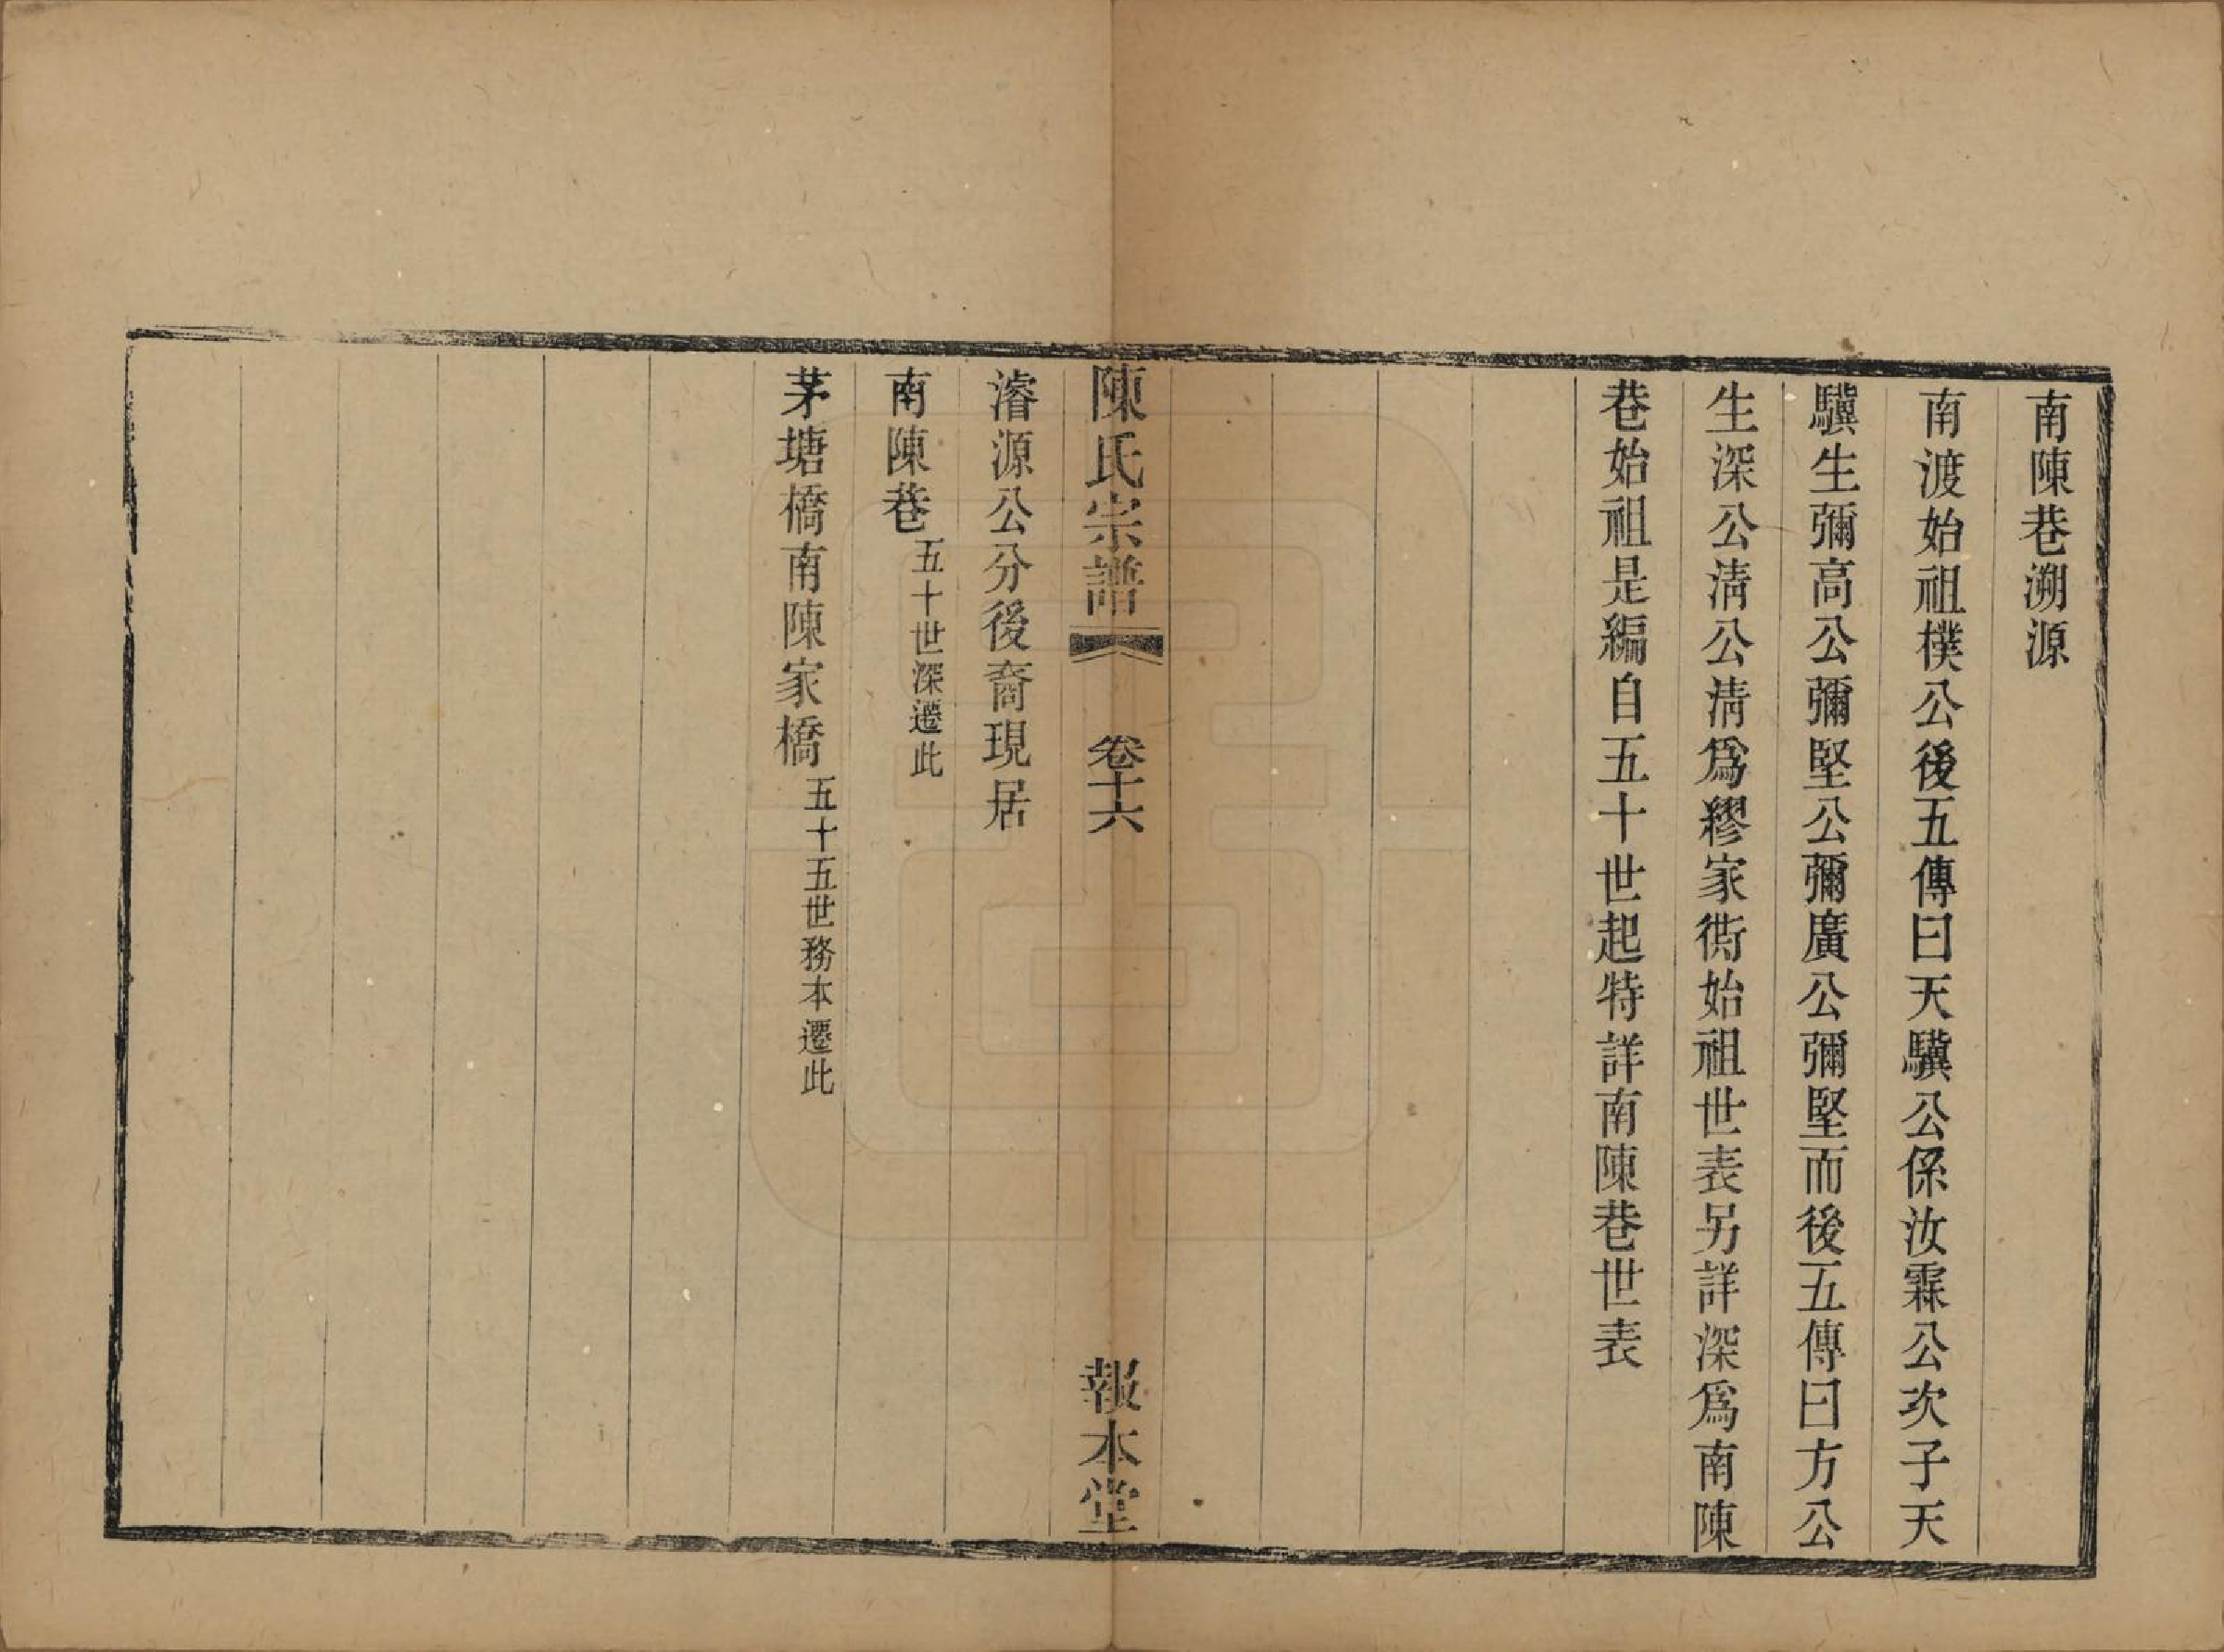 南陳巷溯源
南渡始祖樸公後五傳曰天驥公係汝霖公次子天
驥生彌高公彌堅公彌廣公彌堅而後五傳曰方公
生深公淸公淸爲繆家衖始祖世表另詳深爲南陳
巷始祖是編自五十世起特詳南陳巷世表
陳氏宗譜 卷十六 報本堂
濬源公分後裔現居
南陳巷 五十世深遷此
茅塘橋南陳家橋 五十五世務本遷此